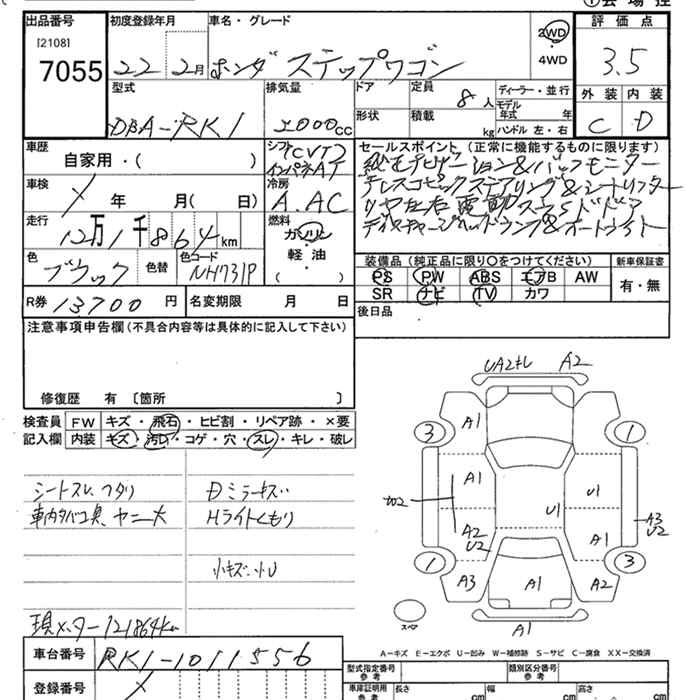 ①会場控
出品番号 初度登録年月 車名・グレード 2WD 評価点
[2108]
7055 22 2月 ホンダ ステップワゴン ・ 4WD 3.5
型式 排気量 ドア 定員 8人 ディーラー・並行 外装 内装
DBA-RK1 2000cc 形状 積載 kg モデル年式 年 C D
ハンドル 左・右
車歴 自家用・( ) シフト CVT インパネAT セールスポイント(正常に機能するものに限ります)
純正ナビゲーション&バックモニター
車検 年 月( 日) 冷房 A.AC テレスコピックステアリング&シートリフター
走行 12万1千864km 燃料 ガソリン・軽油・( ) リヤ左右電動スライドドア
ディスチャージヘッドランプ&オートライト
色 ブラック 色替 色コード NH731P
装備品(純正品に限り○をつけてください) 新車保証書
PS PW ABS エアB AW 有・無
SR ナビ TV カワ
R券 13700円 名変期限 月 日
後日品
注意事項申告欄(不具合内容等は具体的に記入して下さい)
修復歴 有〔箇所 〕
検査員記入欄 FW キズ・飛石・ヒビ割・リペア跡・×要
内装 キズ・汚レ・コゲ・穴・スレ・キレ・破レ
シートスレ、フタリ Dミラーキズ
車内タバコ臭、ヤニ大 Hライトくもり
小キズ・小U
現メーター121864km
A2
A1
3 1
A1 U1
U1
A2 U2 A1 A3 U2
1 3
A3 A1 A2
スペア A1
A-キズ E-エクボ U-凹み W-補修跡 S-サビ C-腐食 XX-交換済
車台番号 RK1-1011556
型式指定番号 参考 類別区分番号 参考
登録番号 車庫証明用 参考 長さ cm 幅 cm 高さ cm